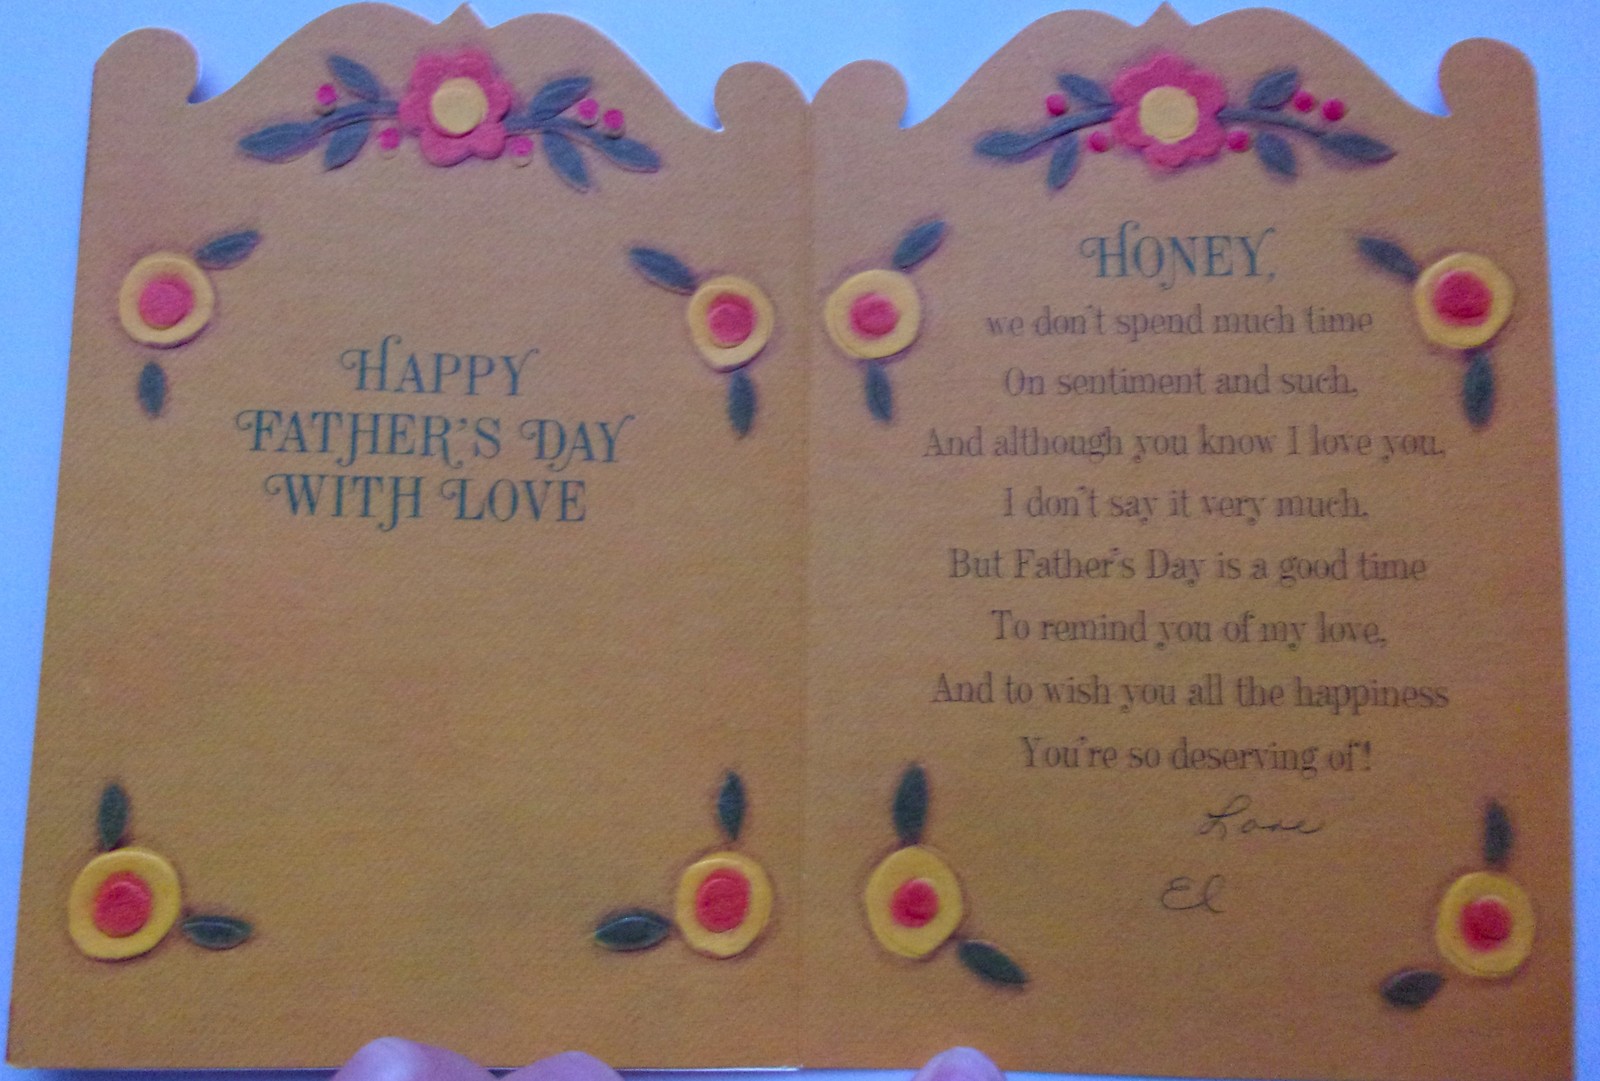 HAPPY
FATHER'S DAY
WITH LOVE
HONEY,
we don't spend much time
On sentiment and such,
And although you know I love you,
I don't say it very much.
But Father's Day is a good time
To remind you of my love,
And to wish you all the happiness
You're so deserving of!
Love
El